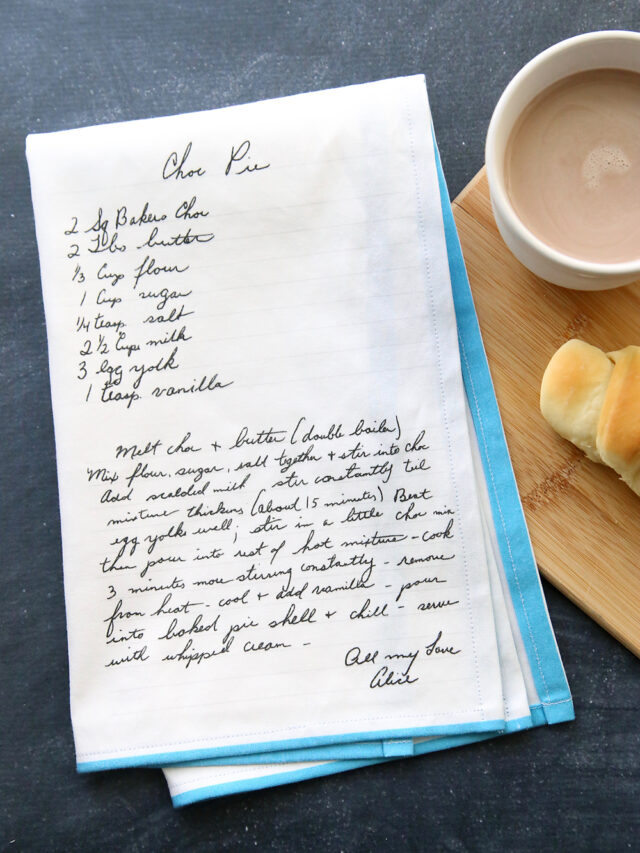 Choc Pie
2 Sq Bakers Choc
2 Tbs butter
1/3 Cup flour
1 Cup sugar
1/4 teasp. salt
2 1/2 Cups milk
3 Egg yolk
1 teasp. vanilla
Melt choc + butter (double boiler)
Mix flour, sugar, salt together + stir into choc
Add scalded milk stir constantly til
mixture thickens (about 15 minutes) Beat
egg yolks well; stir in a little choc mix
then pour into rest of hot mixture - cook
3 minutes more stirring constantly - remove
from heat - cool + add vanilla - pour
into baked pie shell + chill - serve
with whipped cream -
All my Love
Alice